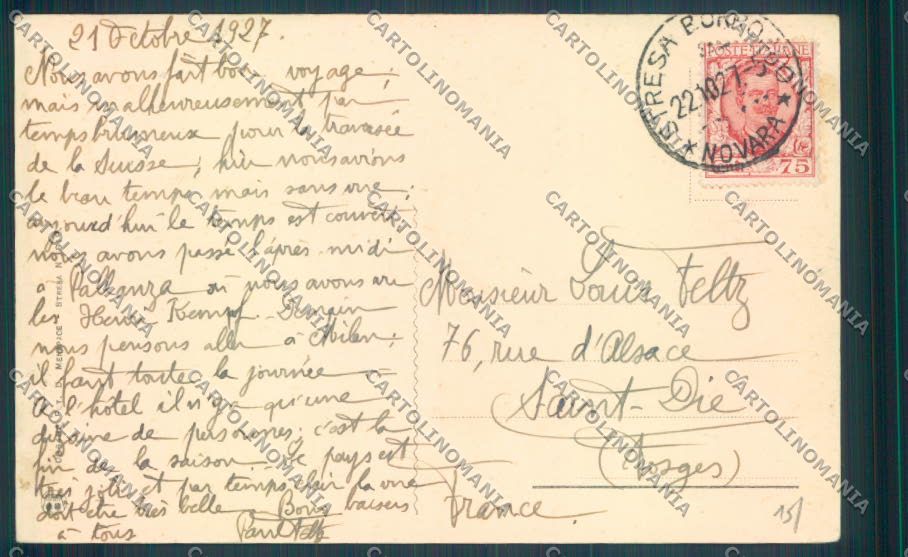 21 Octobre 1927.
Nous avons fait bon voyage,
mais malheureusement par
temps brumeux pour la traversée
de la Suisse; hier nous avons
le beau temps mais sans vue;
aujourd'hui le temps est couvert
nous avons passé l'après-midi
à Pallanza où nous avons vu
les Henri Kempf. Demain
nous pensons aller à Milan;
il faut toute la journée
A l'hôtel il n'y a qu'une
dizaine de personnes; c'est la
fin de la saison. Le pays est
très joli et par temps clair la vue
doit être très belle. Bons baisers
à tous Paul Feltz
STRESA BORROMEO
22.10.27
* NOVARA *
POSTE ITALIANE
75
Monsieur Louis Feltz
76, rue d'Alsace
Saint-Dié
(Vosges)
France.
15/
STRESA
CARTOLINOMANIA